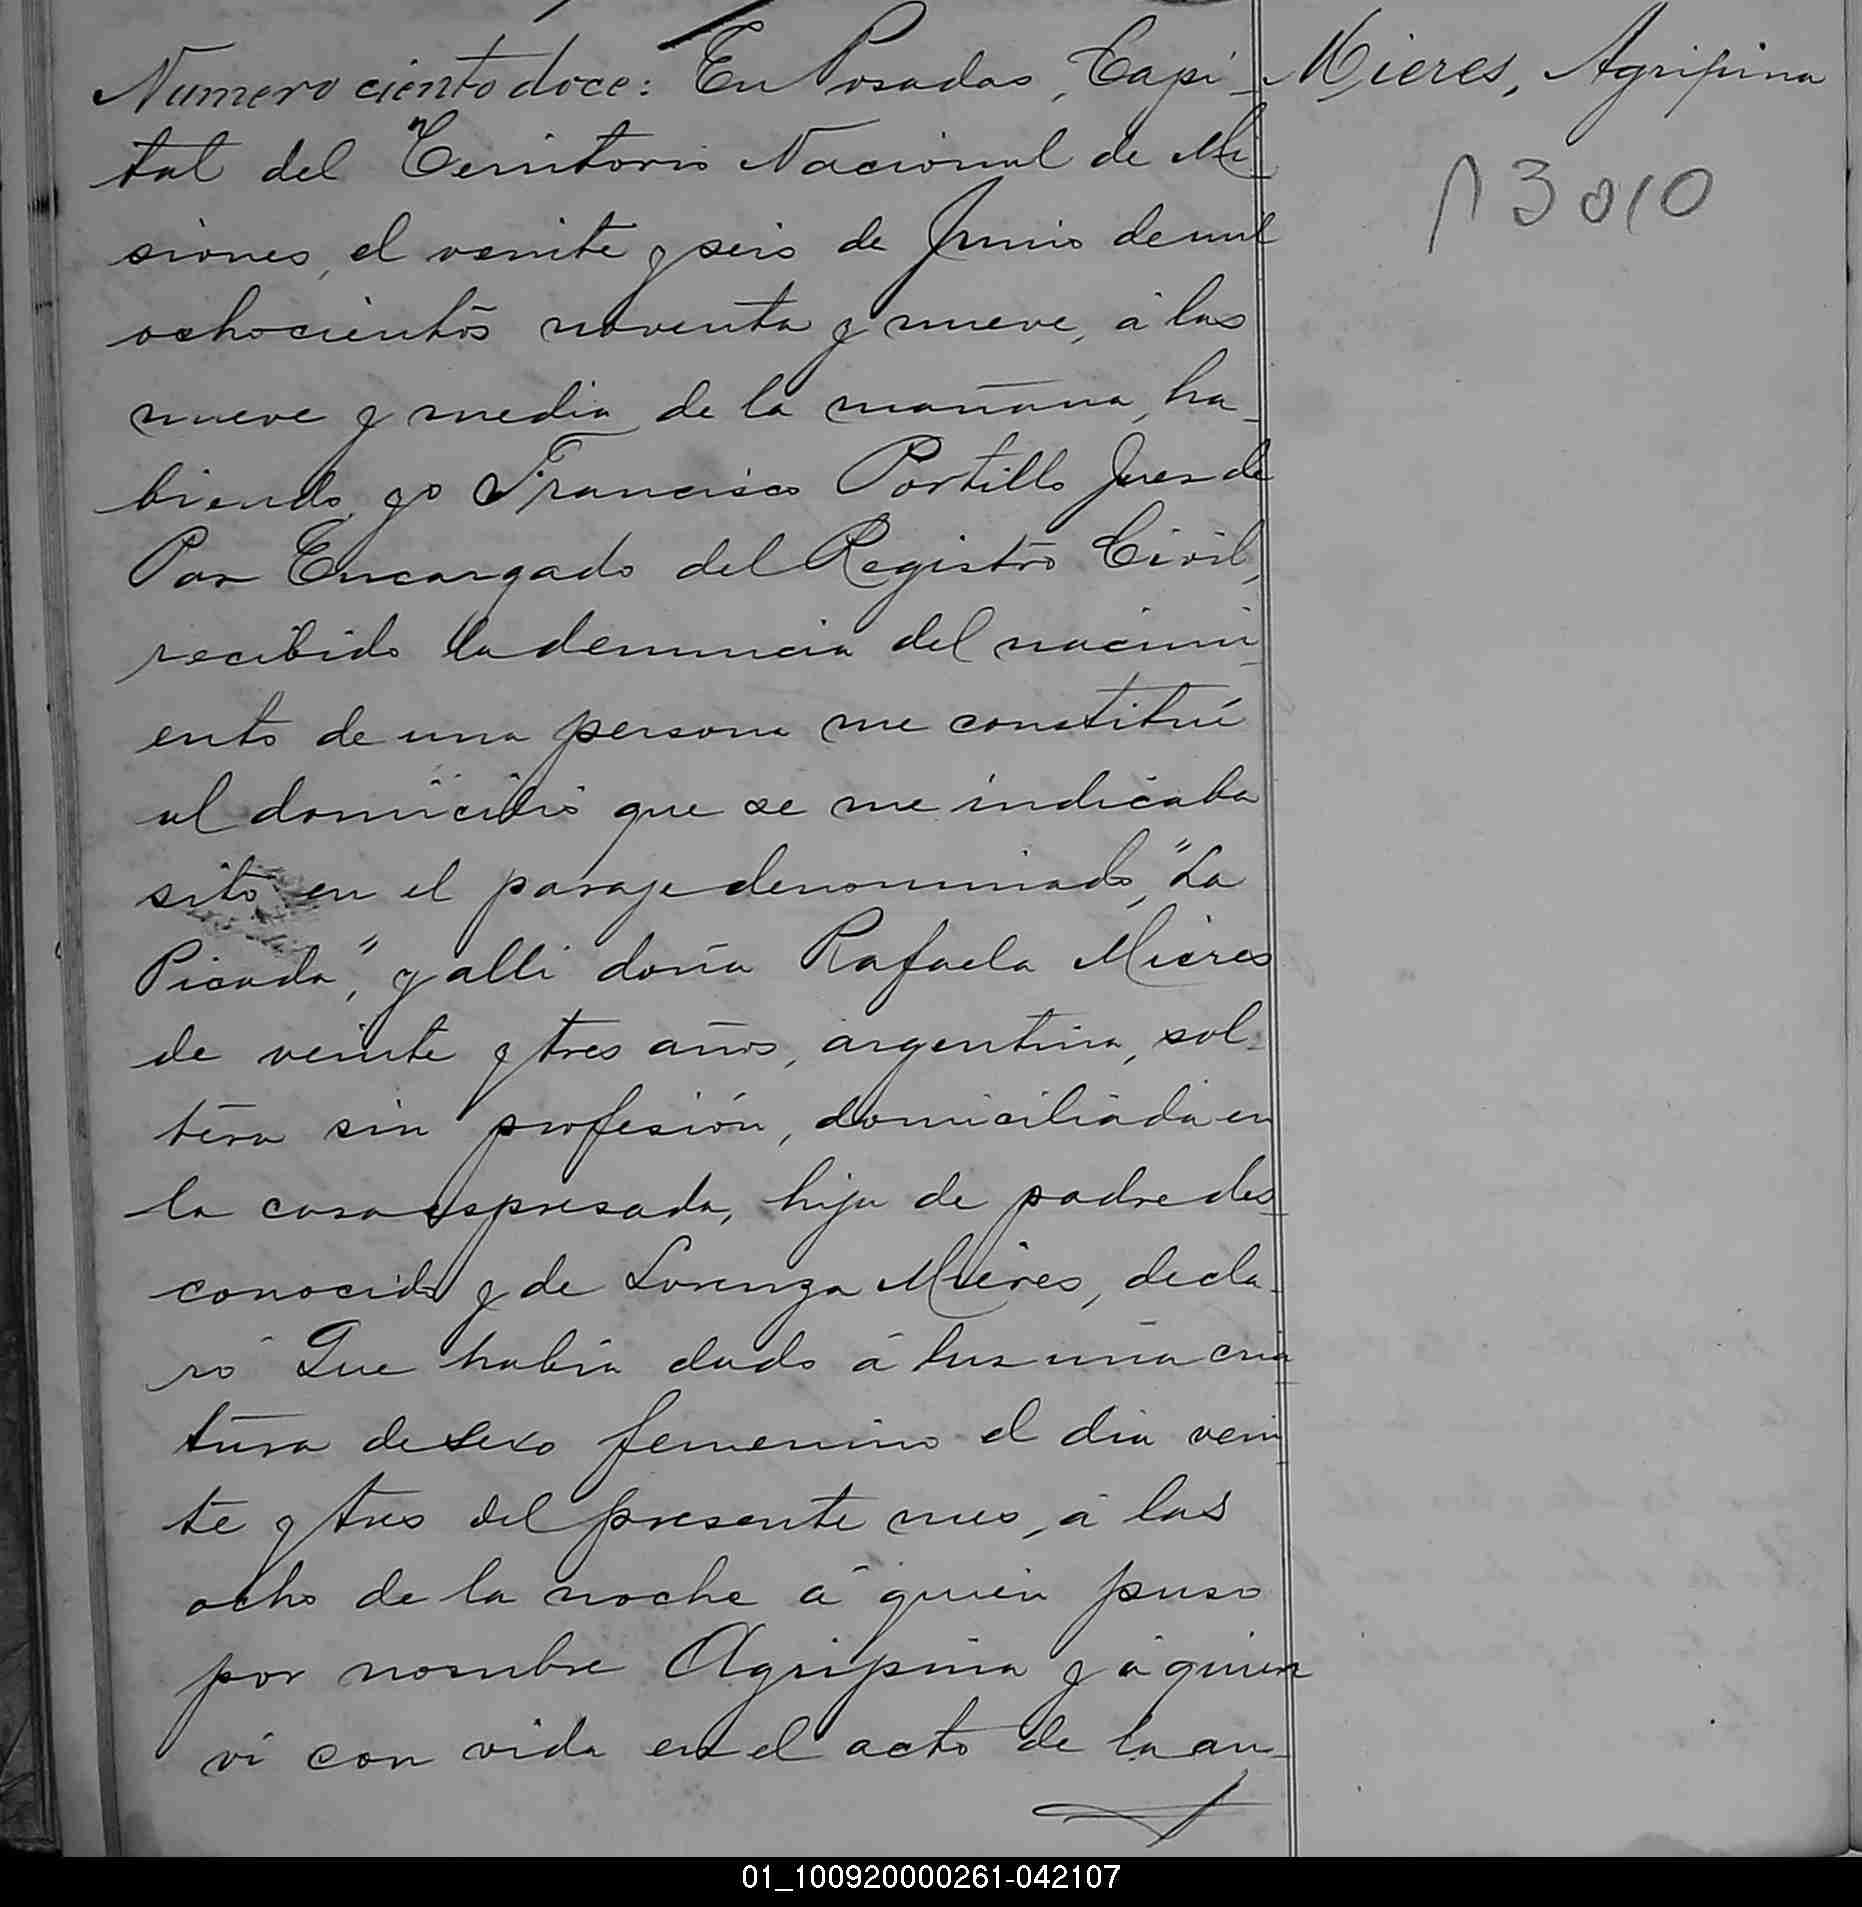 Numero ciento doce: En Posadas, Capi-
tal del Territorio Nacional de Mi-
siones, el veinte y seis de Junio de mil
ochocientos noventa y nueve, á las
nueve y media de la mañana, ha-
biendo, yo Francisco Portillo Juez de
Paz Encargado del Registro Civil,
recibido la denuncia del nacimi-
ento de una persona me constituí
al domicilio que se me indicaba
sito en el paraje denominado, "La
Picada", y alli doña Rafaela Mieres
de veinte y tres años, argentina, sol-
tera sin profesión, domiciliada en
la casa espresada, hija de padre des-
conocido y de Lorenza Mieres, decla-
ró Que habia dado á luz una cria
tura de sexo femenino el dia vein
te y tres del presente mes, á las
ocho de la noche á quien puso
por nombre Agripina y á quien
ví con vida en el acto de la an-
Mieres, Agripina
13010
01_100920000261-042107